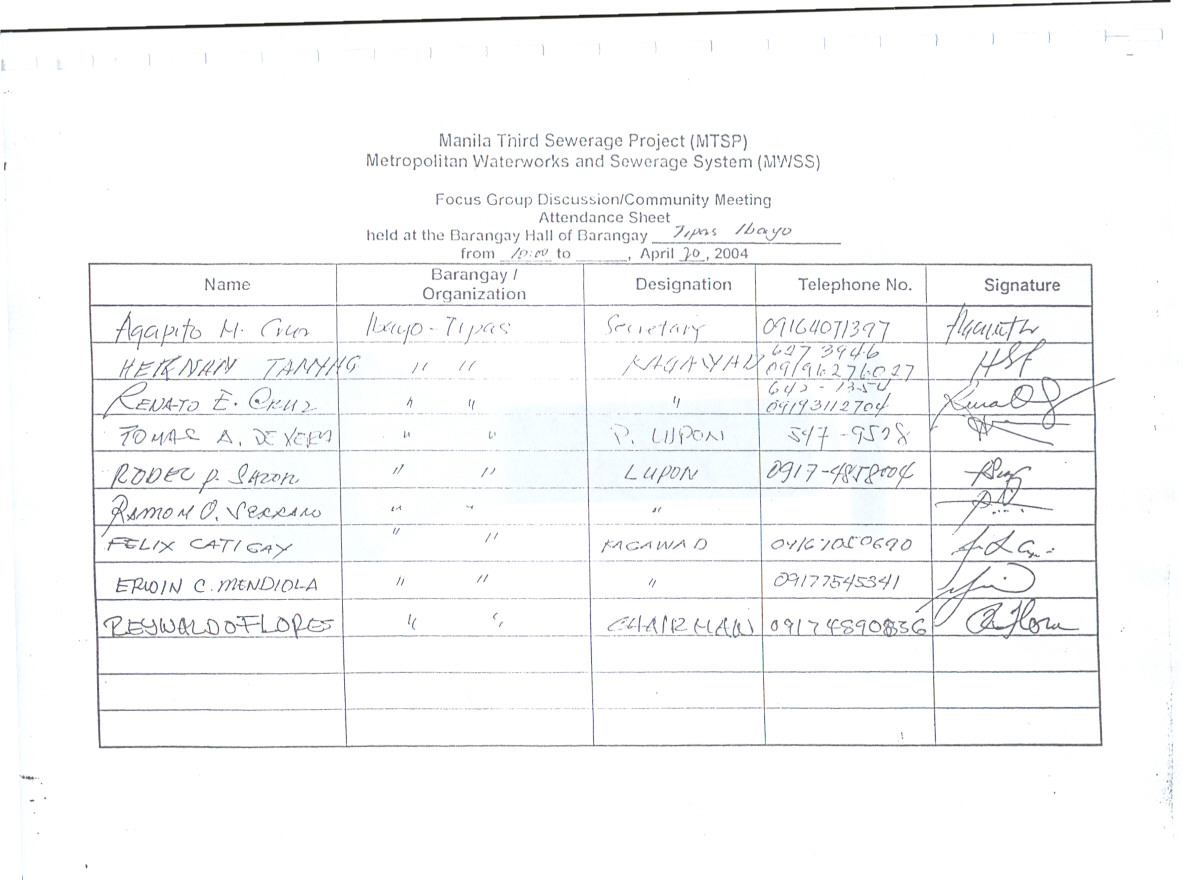 Manila Third Sewerage Project (MTSP)
Metropolitan Waterworks and Sewerage System (MWSS)
Focus Group Discussion/Community Meeting
Attendance Sheet
held at the Barangay Hall of Barangay Tipas Ibayo
from 10:00 to ______, April 20, 2004
Name Barangay / Organization Designation Telephone No. Signature
Agapito M. Cruz Ibayo-Tipas Secretary 09164071397
HERNAN TANYAG " " KAGAWAD 627 3946 09196276027
RENATO E. CRUZ " " " 642-1354 09193112704
TOMAS A. DE VERA " " P. LUPON 547-9528
RODEL P. SAZON " " LUPON 0917-4858004
RAMON O. SERRANO " " "
FELIX CATIGAY " " KAGAWAD 09167050690
ERWIN C. MENDIOLA " " " 09177545341
REYNALDO FLORES " " CHAIRMAN 09174890836